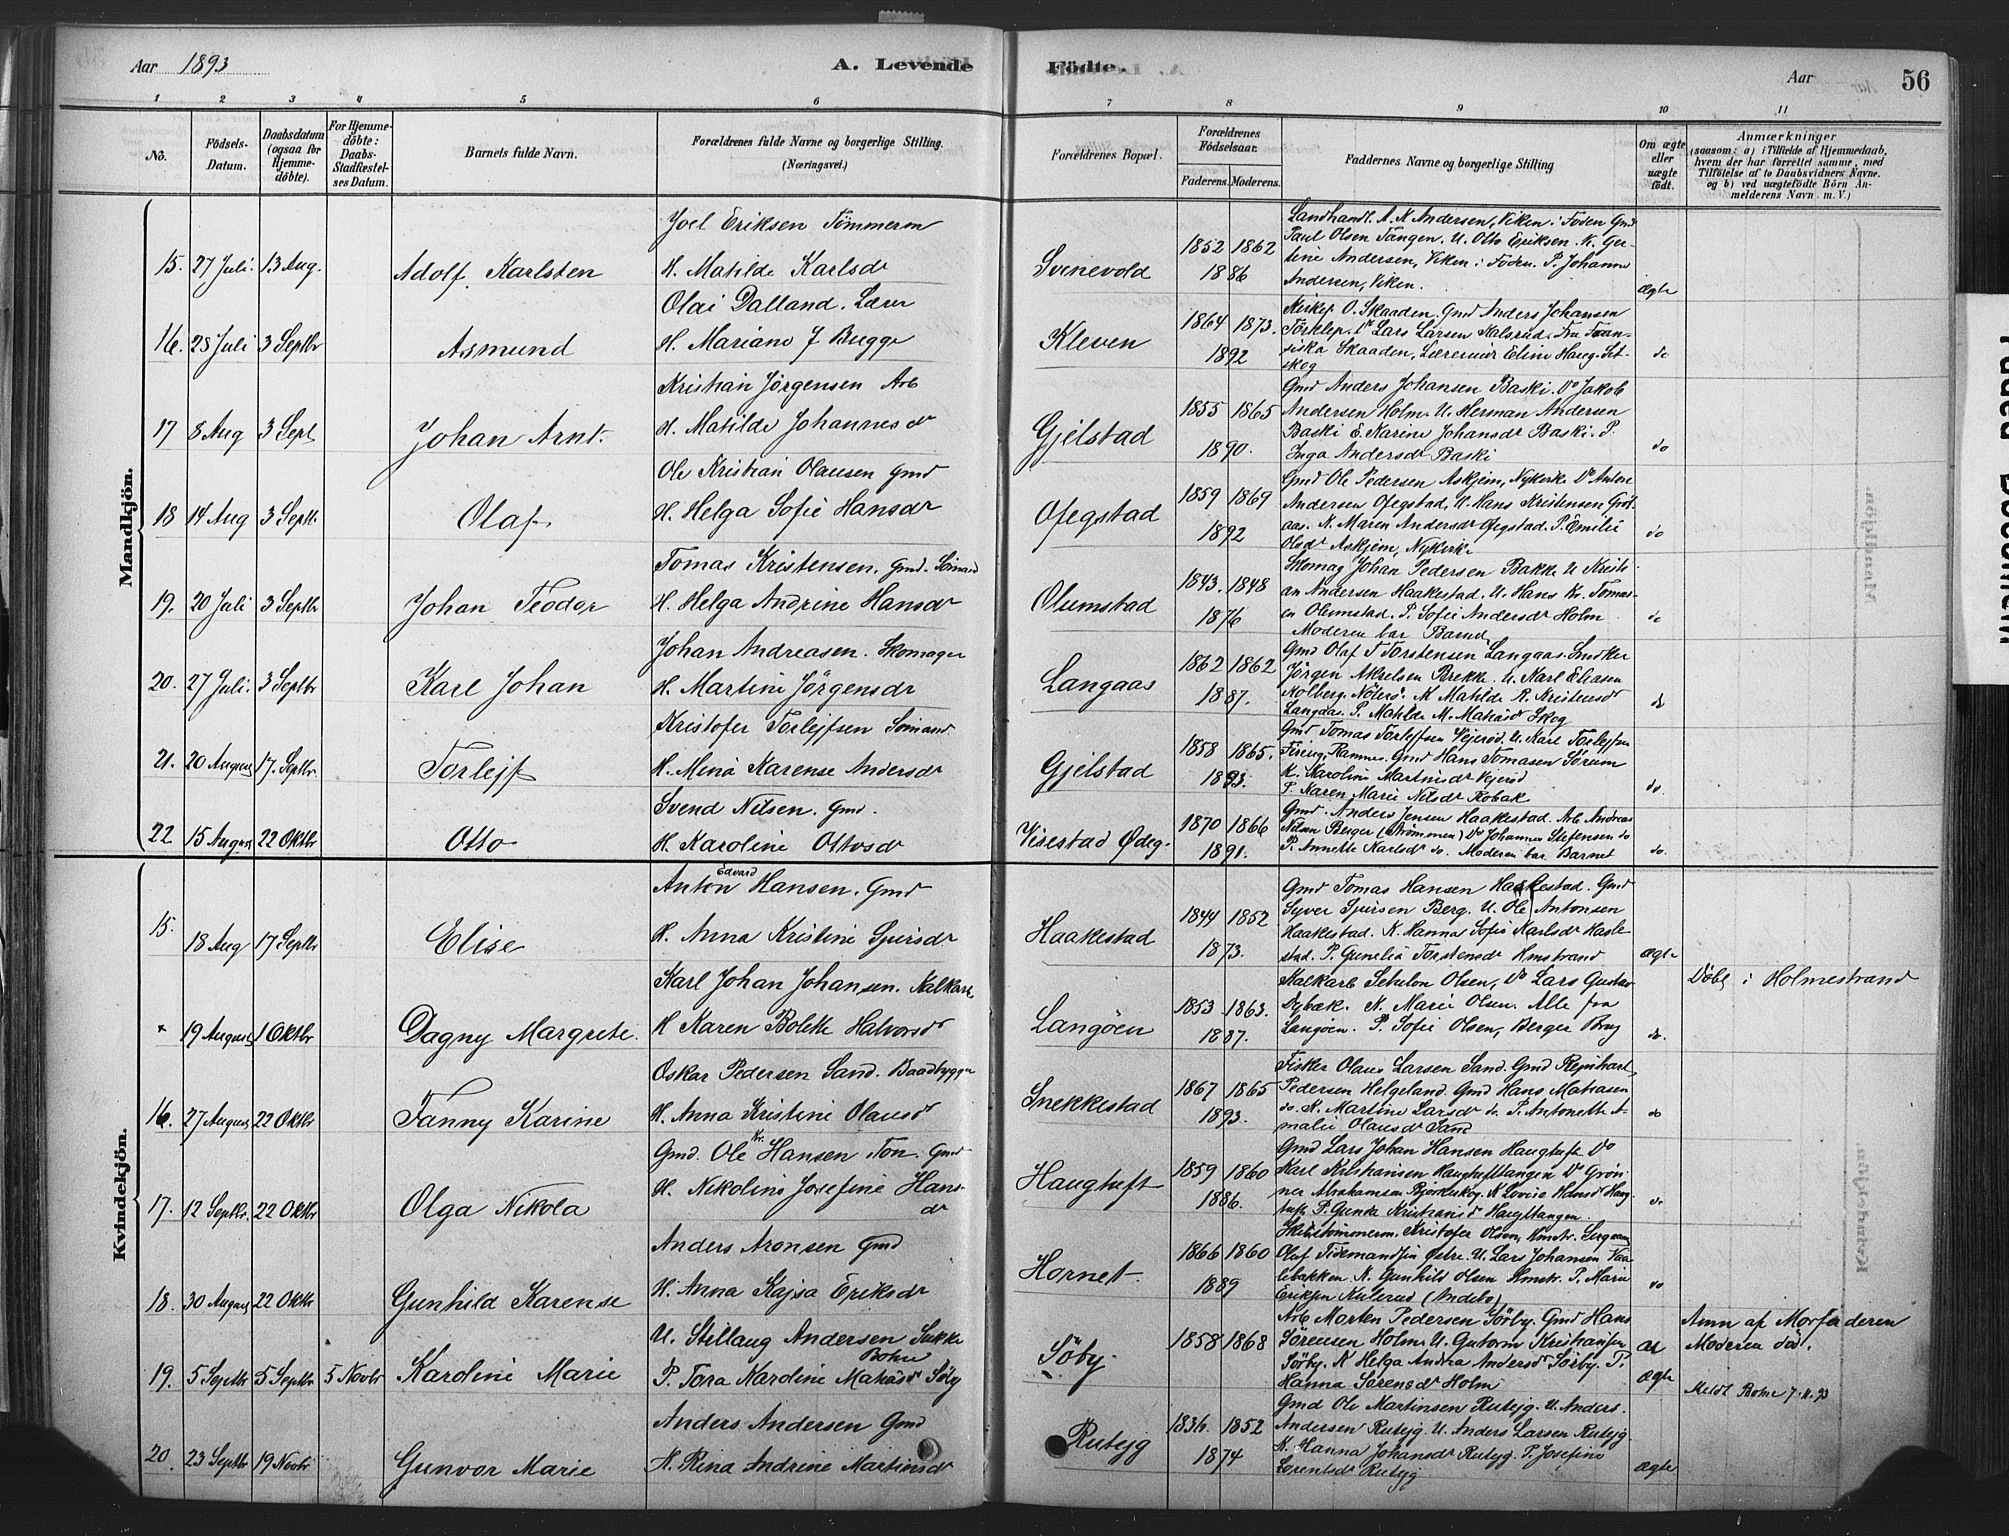 Aar 1893
A. Levende Födte.
Aar 56
1 2 3 4 5 6 7 8 9 10 11
No.
Födsels-Datum.
Daabsdatum (ogsaa for Hjemme-döbte).
For Hjemme-döbte: Daabs-Stadfæstel-ses Datum.
Barnets fulde Navn.
Forældrenes fulde Navne og borgerlige Stilling. (Næringsvei.)
Forældrenes Bopæl.
Forældrenes Födselsaar.
Faderens. Moderens.
Faddernes Navne og borgerlige Stilling
Om ægte eller uægte födt.
Anmærkninger
(saasom: a) i Tilfælde af Hjemmedaab, hvem der har forrettet samme, med Tilföielse af to Daabsvidners Navne. og b) ved uægtefödte Börn An-melderens Navn m. V.)
Mandkjön.
Joel Eriksen Tömmerm
15. 27 Juli. 13 Aug. Adolf Karlsten H. Matilde Karlsdr Svenevold 1852 1862 1886
Landhandl. A. K Andersen, Viken i Foden Gmd
Paul Olsen Tangen. U. Otto Eriksen. K. Ger-
tine Andersen, Viken i Foden. P. Johanne
Andersen, Viken. Ægte
Olai Dalland. Lærer
16. 28 Juli 3 Septbr Asmund H. Mariane J Bugge Kleven 1864 1873. 1892
O. Skaaden. Gmd Anders Johansen
Lars Larsen Fru Fran-
siska Skaaden, Eline Haug. Sit-
skog do
Kristian Jörgensen Arb
17 8 Aug 3 Sept Johan Arnt. H. Matilde Johannesdr Gjelstad 1855 1865 1890.
Gmd Anders Johansen Baski. Do Jakob
Andersen Holm. U. Herman Andersen
Baski K. Karine Johansdr Baski. P.
Inga Andersdr Baski do
Ole Kristian Olausen Gmd
18 14 Aug 3 Septr. Olaf H. Helga Sofie Hansdr Ofegstad 1859 1869 1892
Gmd Ole Pedersen Askjem, Nykirke Do Anton
Andersen Ofegstad, U. Hans Kristensen Grot-
aas. K. Maren Andersdr Ofegstad. P. Emilie
Olsdr Askjem, Nykirke do
Tomas Kristensen. Gmd. Sömand
19. 20 Juli 3 Septbr Johan Teodor H. Helga Andrine Hansdr Olumstad 1843. 1848 1876
Skomag Johan Pedersen Bakke U Kristi-
an Andersen Haakestad. U. Hans Kr. Tomas-
en Olumstad. P. Sofie Andersdr Holm
Moderen bar Barnet do
Johan Andreasen. Skomager
20. 27 Juli. 3 Septbr Karl Johan H. Martine Jörgensdr Langaas 1862 1862 1887.
Gmd Olaf T Torstensen Langaas. Snedker
Jörgen Akselsen Brekke. U. Karl Eliasen
Kolberg. Nöterö. K Matilde R. Kristensdr
Langaas. P. Matilde M. Matisdr Skog do
Kristofer Torlejfsen Sömand
21. 20 August 17. Septbr. Torlejf H. Mina Karense Andersdr Gjelstad 1858 1865. 1893.
Gmd Tomas Torlejfsen Vejeröd. U. Karl Torlejfsen
Ramnes. Gmd Hans Tomasen Sörum
K. Karoline Martinisdr Vejeröd
P. Karen Marie Nilsdr Robak do.
Svend Nilsen. Gmd.
22 15 August 22 Oktbr Otto H. Karoline Ottosdr Visestad Ødeg. 1870 1866 1891.
Gmd. Anders Jensen Haakestad. Arb Andreas
Nilsen Berger (Strömmen) Do Johannes Stefensen do
P. Annette Karlsdr do. Moderen bar Barnet do.
Kvindekjön.
Anton Edvard Hansen. Gmd
15. 18 Aug 17 Septbr Elise H. Anna Kristine Syversdr Haakestad 1844 1852 1873.
Gmd Tomas Hansen Haakestad. Gmd
Syver Syversen Berg. U. Ole Antonsen
Haakestad. K. Hanna Sofie Karlsdr Hasle
stad. P. Gunelia Torstensdr Hmstrand Ægte
Karl Johan Johansen. Kalkarb
19 August 1 Oktbr Dagny Margrete. H Karen Bolette Halvorsdr Langöen 1853 1863. 1887.
Kalkarb Schelon Olsen, Do Lars Gustav
Dybæk. K. Marie Olsen. Alle fra
Langöen. P. Sofie Olsen, Berger Brug do. Döbt i Holmestrand
Oskar Pedersen Sand. Baadbygger
16. 27 August 22 Oktbr Fanny Karine H. Anna Kristine Olausdr Snekkestad 1867 1865 1893.
Fisker Olaus Larsen Sand. Gmd Rejnhart
Pedersen Helgeland. Gmd Hans Matiasen
do. K. Martine Larsdr do. P. Antonette A-
malie Olausdr Sand do
Gmd. Ole Kr. Hansen Ton. Gmd
17. 12 Septbr. 22 Oktbr Olga Nikola H. Nikoline Josefine Hans-dr Haugtuft 1859 1860 1886.
Gmd Lars Johan Hansen Haugtuft Do
Karl Kristiansen Haugtufttangen Do Grön-
ner Abrahamsen Bjerkeskog. K Lovise Hansdr Haug-
tuft. P. Gunda Kristiansdr Haugttangen. do
Anders Aronsen Gmd
18. 30 August 22 Oktbr Gunhild Karense H. Anna Kajsa Eriksdr Hornet. 1866 1860 1889
Skibstömmerm. Kristofer Olsen, Hmstr.
Olaf Tidemandsen Østre. U. Lars Johansen Vaa-
lebakken K. Gunhild Olsen Hmstr. P. Marie
Eriksen (Andebo) do
U. Stillaug Andersen Sukke Botne
19. 5 Septbr 5 Septbr 5 Novbr Karoline Marie P. Tora Karoline Matisdr Söby Söby 1858 1868
Arb Morten Pedersen Sörby. Gmd Hans
Sörensen Holm. U. Gutorm Kristiansen
Sörby. K Helga Andrea Andersdr Sörby. P.
Hanna Sorensdr Holm
Ægte
Anm af Morfaderen
Moderen död.
Meldt Botne 7.11.93
Anders Andersen Gmd
20. 23 Septbr 19 Novbr Gunvor Marie H. Rina Andrine Martinsdr Rutejg 1836. 1852 1874
Gmd Ole Martinsen Rutejg. U. Anders
Andersen Rutejg. U. Anders Larsen Rutejg.
K. Hanna Johansdr Rutejg. P. Josefine
Lorentsdr Rutejg Ægte